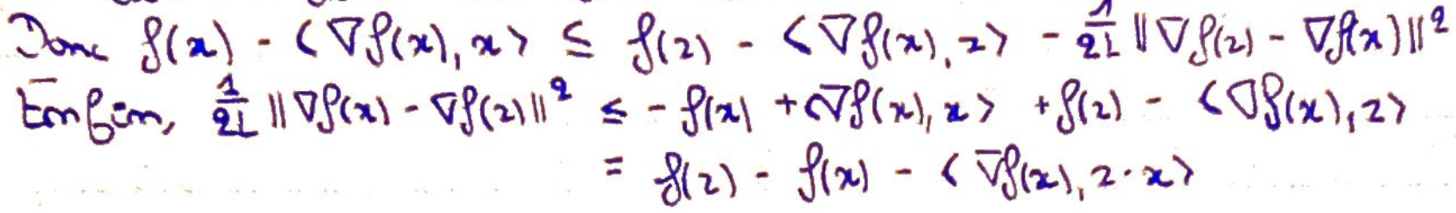 Donc f(x) - ⟨∇f(x), x⟩ ≤ f(z) - ⟨∇f(x), z⟩ - 1/2L ||∇f(z) - ∇f(x)||²
Enfin, 1/2L ||∇f(x) - ∇f(z)||² ≤ - f(x) + ⟨∇f(x), x⟩ + f(z) - ⟨∇f(x), z⟩
= f(z) - f(x) - ⟨∇f(x), z - x⟩